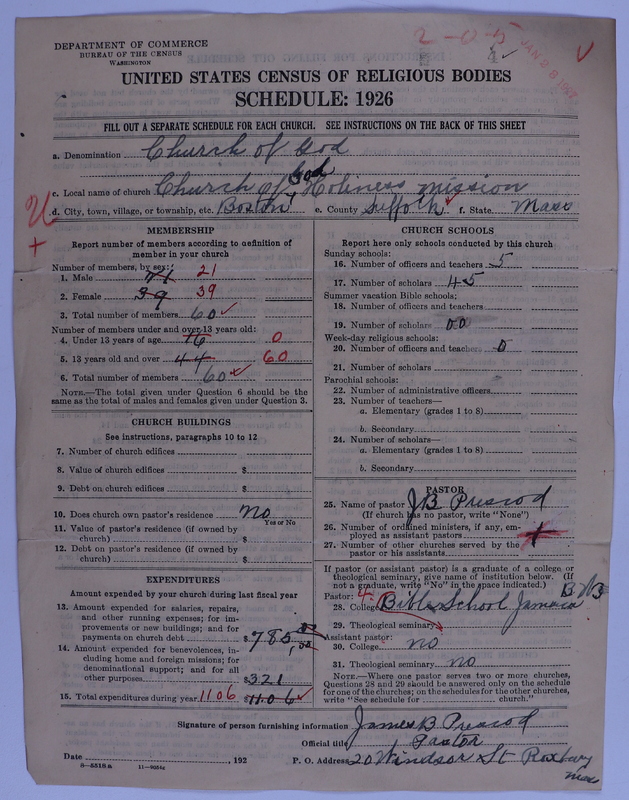 DEPARTMENT OF COMMERCE
BUREAU OF THE CENSUS
WASHINGTON
2-0-5
UNITED STATES CENSUS OF RELIGIOUS BODIES
SCHEDULE: 1926
FILL OUT A SEPARATE SCHEDULE FOR EACH CHURCH. SEE INSTRUCTIONS ON THE BACK OF THIS SHEET
a. Denomination Church of God
c. Local name of church Church of God Holiness mission
d. City, town, village, or township, etc. Boston e. County Suffolk f. State Mass
MEMBERSHIP
Report number of members according to definition of
member in your church
Number of members, by sex:
1. Male 21
2. Female 39 39
3. Total number of members 60
Number of members under and over 13 years old:
4. Under 13 years of age 16 0
5. 13 years old and over 44 60
6. Total number of members 60
NOTE.—The total given under Question 6 should be
the same as the total of males and females given under Question 3.
CHURCH BUILDINGS
See instructions, paragraphs 10 to 12
7. Number of church edifices
8. Value of church edifices $
9. Debt on church edifices $
10. Does church own pastor's residence No
Yes or No
11. Value of pastor's residence (if owned by
church) $
12. Debt on pastor's residence (if owned by
church) $
EXPENDITURES
Amount expended by your church during last fiscal year
13. Amount expended for salaries, repairs,
and other running expenses; for im-
provements or new buildings; and for
payments on church debt $ 785.00
14. Amount expended for benevolences, in-
cluding home and foreign missions; for
denominational support; and for all
other purposes $ 321
15. Total expenditures during year 1106 $ 1106
CHURCH SCHOOLS
Report here only schools conducted by this church
Sunday schools:
16. Number of officers and teachers 5
17. Number of scholars 45
Summer vacation Bible schools:
18. Number of officers and teachers
19. Number of scholars 00
Week-day religious schools:
20. Number of officers and teachers 0
21. Number of scholars
Parochial schools:
22. Number of administrative officers
23. Number of teachers—
a. Elementary (grades 1 to 8)
b. Secondary
24. Number of scholars—
a. Elementary (grades 1 to 8)
b. Secondary
PASTOR
25. Name of pastor J B Prescod
(If church has no pastor, write "None")
26. Number of ordained ministers, if any, em-
ployed as assistant pastors
27. Number of other churches served by the
pastor or his assistants
If pastor (or assistant pastor) is a graduate of a college or
theological seminary, give name of institution below. (If
not a graduate, write "No" in the place indicated.)
Pastor:
28. College Bible School Jamaica
29. Theological seminary
Assistant pastor:
30. College no
31. Theological seminary no
NOTE.—Where one pastor serves two or more churches,
Questions 28 and 29 should be answered only on the schedule
for one of the churches; on the schedules for the other churches,
write "See schedule for church."
Signature of person furnishing information James B Prescod
Official title Pastor
Date , 192 P. O. Address 20 Windsor St Roxbury
Mass
8—5518a 11—9034